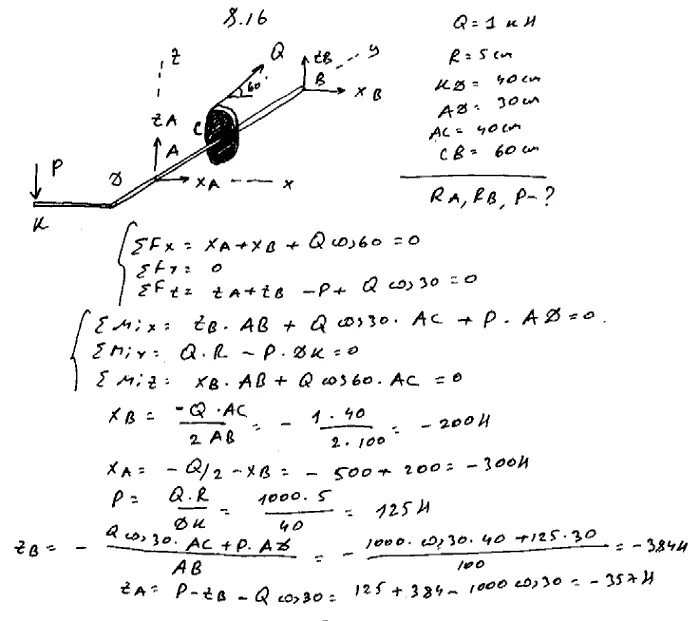 8.16
Q = 1 кН
R = 5 cm
KD = 40 cm
AD = 30 cm
AC = 40 cm
CB = 60 cm
RA, RB, P - ?
z
Q
60°
zB
B
y
xB
C
zA
A
P
D
xA
x
K
ΣFx = xA + xB + Q cos60 = 0
ΣFy = 0
ΣFz = zA + zB - P + Q cos30 = 0
ΣMix = zB · AB + Q cos30 · AC + P · AD = 0.
ΣMiy = Q.R - P. DK = 0
ΣMiz = xB · AB + Q cos60 · AC = 0
xB = -Q · AC / 2 AB = - 1 · 40 / 2 · 100 = - 200H
xA = - Q/2 - xB = - 500 + 200 = - 300H
P = Q.R / DK = 1000 · 5 / 40 = 125H
zB = - Q cos30 · AC + P. AD / AB = - 1000 · cos30 · 40 + 125 · 30 / 100 = - 384H
zA = P - zB - Q cos30 = 125 + 384 - 1000 cos30 = - 357H